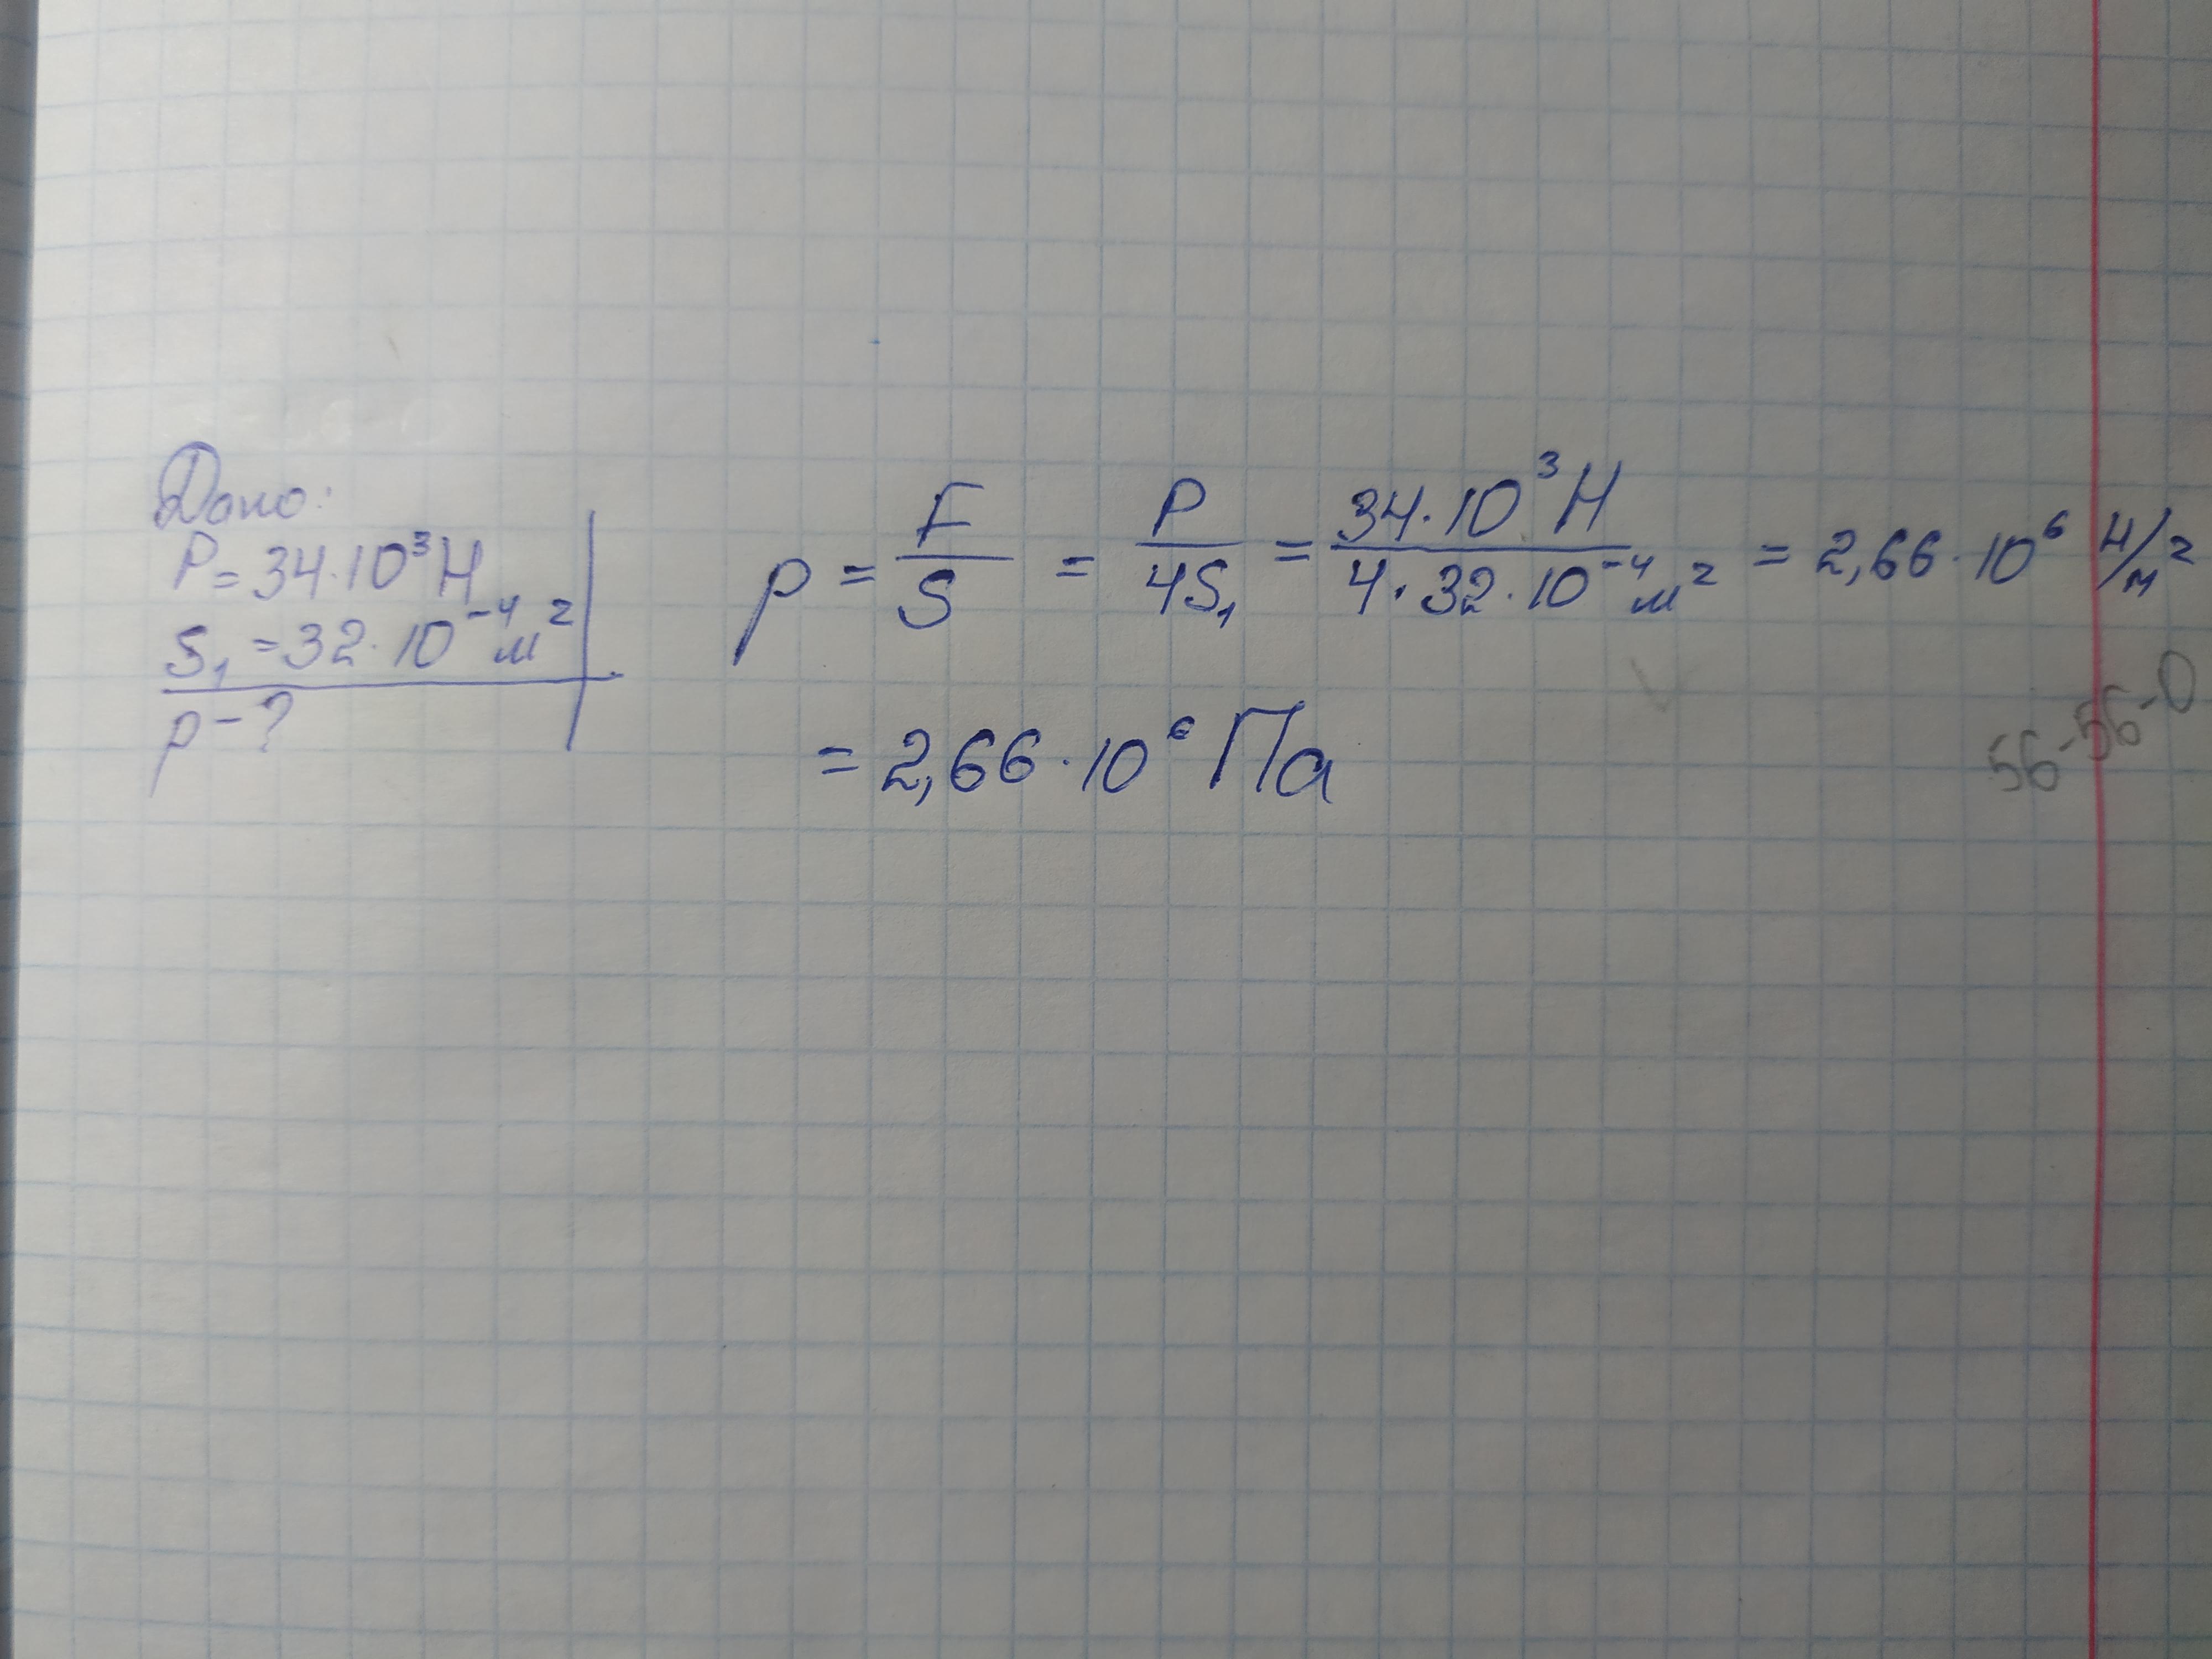 Дано:
P = 34·10³ Н
S₁ = 32·10⁻⁴ м²
p - ?
p = F/S = P/4S₁ = 34·10³ Н / 4·32·10⁻⁴ м² = 2,66·10⁶ Н/м²
= 2,66·10⁶ Па
56-56-0